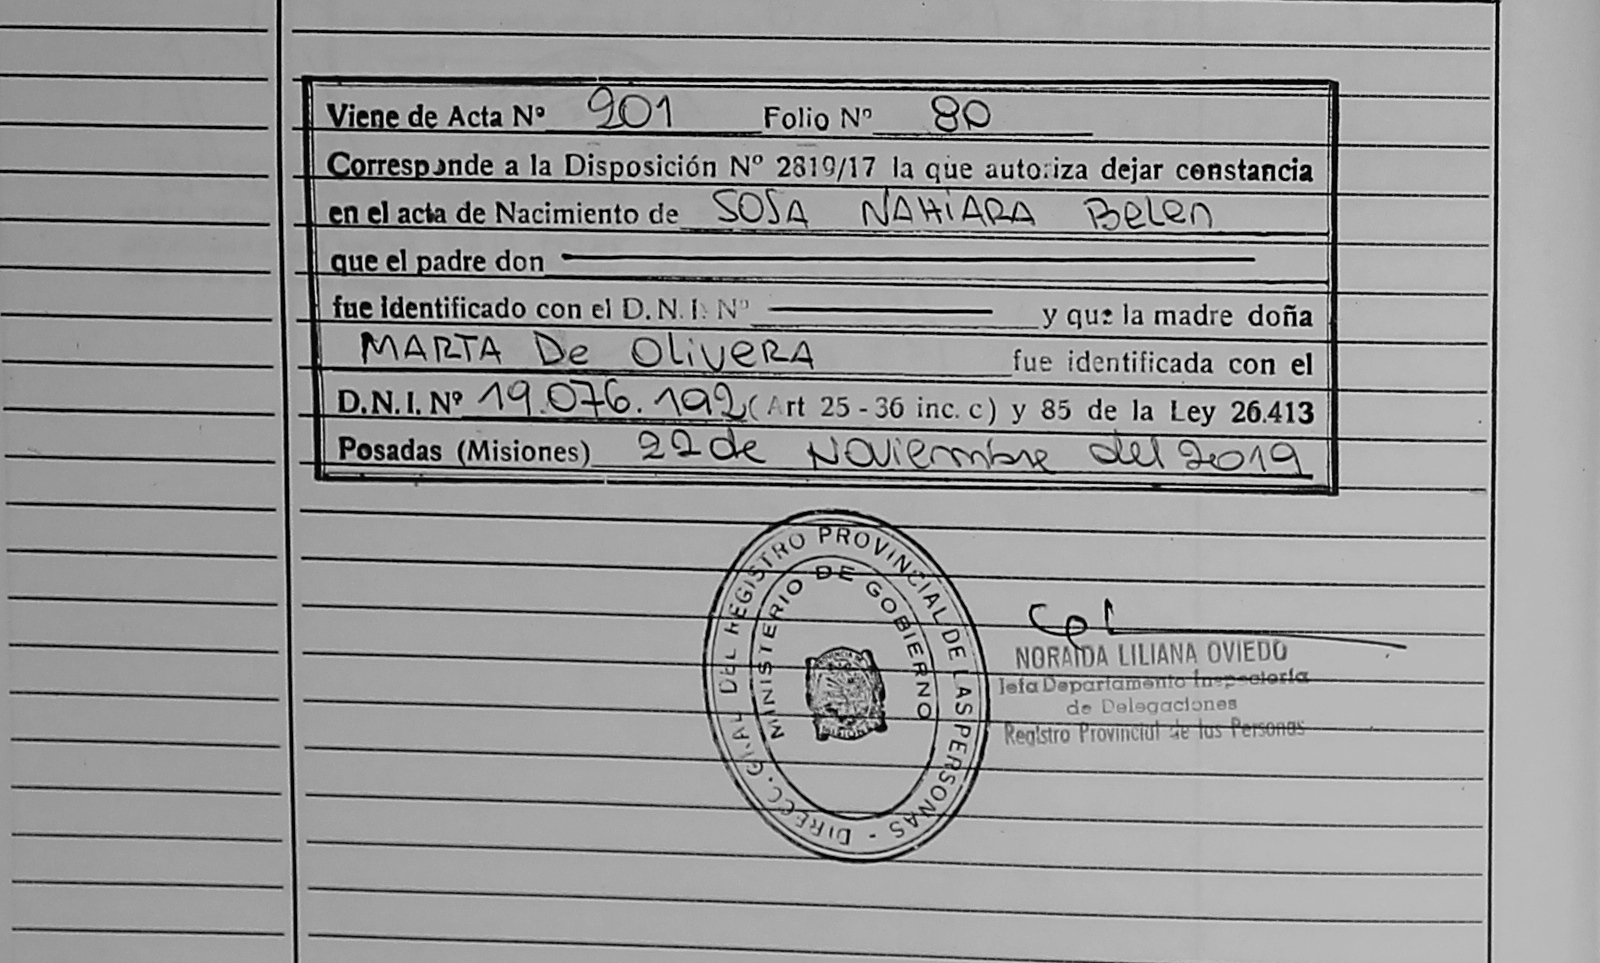 Viene de Acta Nº 901 Folio Nº 80
Corresponde a la Disposición Nº 2819/17 la que autoriza dejar constancia
en el acta de Nacimiento de SOSA NAHIARA Belen
que el padre don
fue identificado con el D.N.I. Nº y que la madre doña
MARTA De OLIVERA fue identificada con el
D.N.I. Nº 19.076.192 (Art 25 - 36 inc. c) y 85 de la Ley 26.413
Posadas (Misiones) 22 de Noviembre del 2019
DIRECC. GRAL DEL REGISTRO PROVINCIAL DE LAS PERSONAS -
MINISTERIO DE GOBIERNO
NORAIDA LILIANA OVIEDO
Jefa Departamento Inspectoría
de Delegaciones
Registro Provincial de las Personas